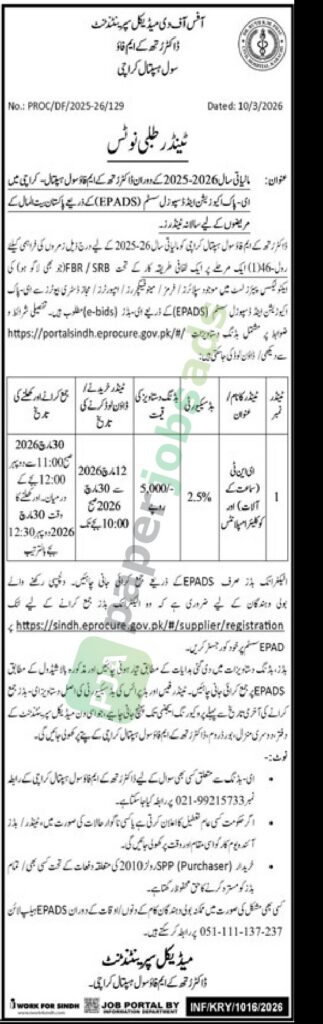 آفس آف دی میڈیکل سپرینٹنڈنٹ
ڈاکٹر رتھ کے ایم فاؤ
سول ہسپتال کراچی
No.: PROC/DF/2025-26/129
Dated: 10/3/2026
ٹینڈر طلبی نوٹس
عنوان: مالیاتی سال 2026-2025 کے دوران ڈاکٹر رتھ کے ایم فاؤ سول ہسپتال - کراچی میں
ای-پاک ایکوزیشن اینڈ ڈسپوزل سسٹم (EPADS) کے ذریعے پاکستان بیت المال کے
مریضوں کے لیے سالانہ ٹینڈرز۔
ڈاکٹر رتھ کے ایم فاؤ سول ہسپتال کراچی کو مالیاتی سال 26-2025 کے لیے درج ذیل زمروں کی فراہمی کیلئے
رول-46(1) ایک مرحلے پر ایک لفافی طریقہ کار کے تحت FBR / SRB (جو بھی لاگو ہو) کی
ایکٹو ٹیکس پیئرز لسٹ میں موجود سپلائرز / فرمز / مینوفیکچررز / امپورٹرز / مجاز ڈسٹری بیوٹرز سے ای-پاک
ایکوزیشن اینڈ ڈسپوزل سسٹم (EPADS) کے ذریعے ای-بڈز (e-bids) مطلوب ہیں۔ تفصیلی شرائط و
ضوابط پر مشتمل بڈنگ دستاویزات https://portalsindh.eprocure.gov.pk/#/
سے دیکھی / ڈاؤن لوڈ کی جاسکتی ہیں:
ٹینڈر نمبر | ٹینڈر کا نام / عنوان | بڈ سیکیورٹی | بڈنگ دستاویز کی قیمت | ٹینڈر خریدنے / ڈاؤن لوڈ کرنے کی تاریخ | جمع کرانے اور کھلنے کی تاریخ
1 | ای این ٹی (سماعت کے آلات) اور کوکلیئر امپلانٹس | 2.5% | 5,000/- روپے | 12 مارچ 2026 سے 30 مارچ 2026 صبح 10:00 بجے تک | 30 مارچ 2026 صبح 11:00 سے دوپہر 12:00 بجے کے درمیان۔ اور کھلنے کا وقت 30 مارچ 2026 دوپہر 12:30 بجے بالترتیب
الیکٹرانک بڈز صرف EPADS کے ذریعے جمع کرائی جانی چاہئیں۔ دلچسپی رکھنے والے
بولی دہندگان کے لیے ضروری ہے کہ وہ الیکٹرانک بڈز جمع کرانے کے لیے لنک
https://sindh.eprocure.gov.pk/#/supplier/registration پر
EPAD سسٹم پر خود کو رجسٹر کریں۔
بڈز، بڈنگ دستاویزات میں دی گئی ہدایات کے مطابق تیار ہونی چاہئیں اور مذکورہ بالا شیڈول کے مطابق
EPADS پر جمع کرائی جانی چاہئیں۔ ٹینڈر فیس اور پے آرڈر کی بڈ سیکیورٹی کی اصل دستاویز ای-بڈز جمع
کرانے کی آخری تاریخ سے پہلے پروکیورنگ ایجنسی تک پہنچ جانی چاہیے، جو اسی دن میڈیکل سپرینٹنڈنٹ کے
دفتر، دوسری منزل، بورڈ روم، ڈاکٹر رتھ کے ایم فاؤ سول ہسپتال کراچی کے پتے پر کھولی جائیں گی۔
نوٹ:-
• ای-بڈنگ سے متعلق کسی بھی سوال کے لیے ڈاکٹر رتھ کے ایم فاؤ سول ہسپتال کراچی کے رابطہ
نمبر 021-99215733 پر رابطہ کیا جاسکتا ہے۔
• اگر حکومت کسی عام تعطیل کا اعلان کرتی ہے یا کسی ناگوار حالات کی صورت میں، ٹینڈر / بڈز
آئندہ یوم کار کو اسی مقام اور وقت پر کھولی جائیں گی۔
• خریدار (Purchaser) SPP رولز 2010 کی متعلقہ دفعات کے تحت کسی بھی / تمام
بڈز کو مسترد کرنے کا حق محفوظ رکھتا ہے۔
کسی بھی مشکل کی صورت میں ممکنہ بولی دہندگان کام کے دنوں / اوقات کے دوران EPADS ہیلپ لائن
051-111-137-237 پر رابطہ کر سکتے ہیں۔
میڈیکل سپرینٹنڈنٹ
ڈاکٹر رتھ کے ایم فاؤ سول ہسپتال کراچی۔
I WORK FOR SINDH
JOB PORTAL BY
INFORMATION DEPARTMENT
INF/KRY/1016/2026
paperjobsads